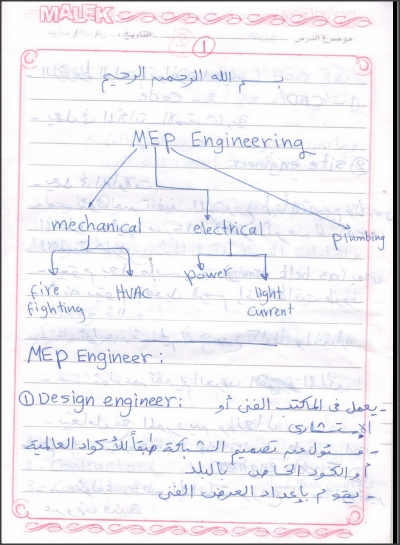 MALEK
موضوع الدرس: التاريخ:
1
بسم الله الرحمن الرحيم
MEP Engineering
mechanical electrical plumbing
fire fighting HVAC power light current
MEP Engineer:
① Design engineer: - يعمل فى المكتب الفنى أو
الإستشارى
- مسئول عن تصميم الشبكة طبقاً للأكواد العالمية
أو الكود الخاص بالبلد
- يقوم بإعداد العرض الفنى